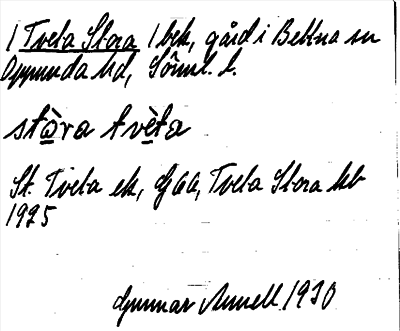 1 Tveta Stora 1 bek, gård i Bettna sn
Oppunda hd, Söml. l.
stòra tvèta
St. Tveta ek, GAA, Tveta Stora kb
1925
Gunnar Arnell 1930